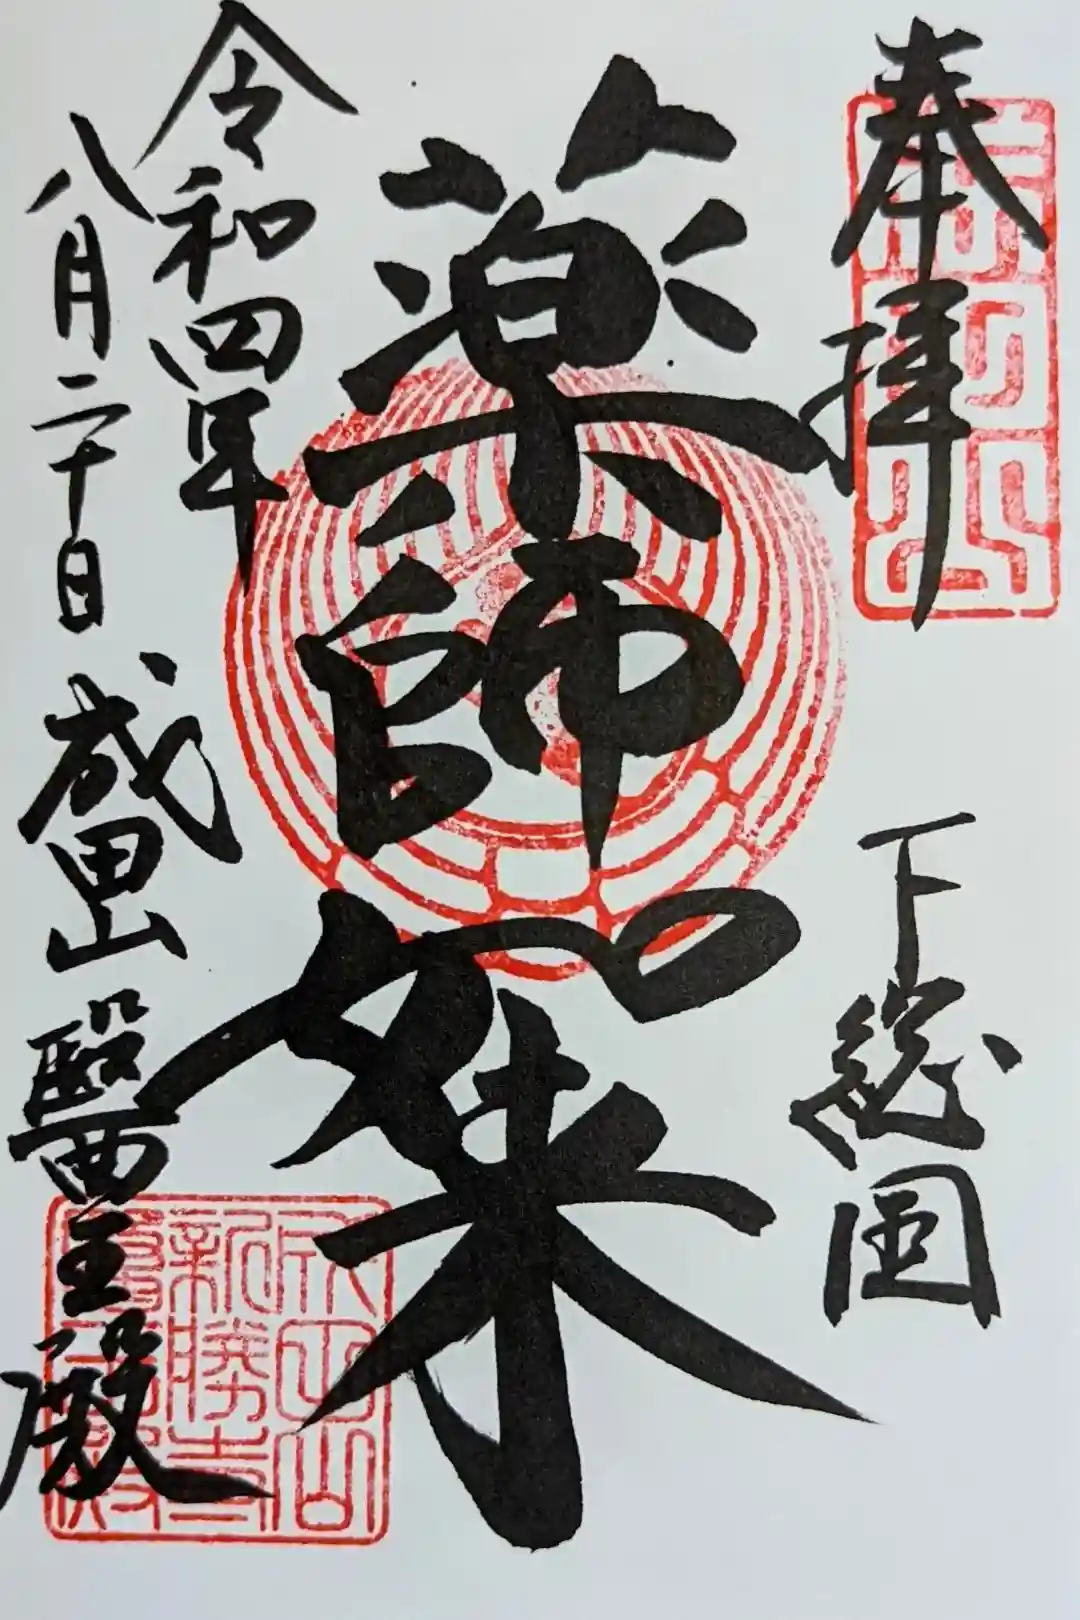 奉拝
下総國
薬師如来
令和四年
八月二十日
成田山 醫王殿
成田山
新勝寺